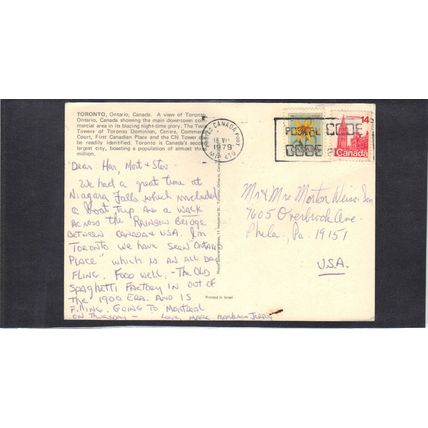 TORONTO, Ontario, Canada. A view of Toronto
Ontario, Canada showing the main downtown com-
mercial area in its blazing night-time glory. The Twin
Towers of Toronto Dominion, Centre, Commerce
Court, First Canadian Place and the CN Tower can
be readily identified. Toronto is Canada's second
largest city, boasting a population of almost
million.
Dear Han, Mort & Stev-
We had a great time at
Niagara Falls which included
a Boat Trip and a walk
across the Rainbow Bridge
between Canada & USA. In
Toronto we have seen Ontario
Place" which is an all day
fling. Food well - The Old
Spaghetti Factory is out of
the 1900 era. and is
filling. Going to Montreal
on Thursday - Love, Mark
Printed in Israel
CANADA
1979
POSTAL CODE
CODE
14
Canada
Mr & Mrs Morton
7605 Overbrook Ave.
Phila., Pa. 19151
U.S.A.